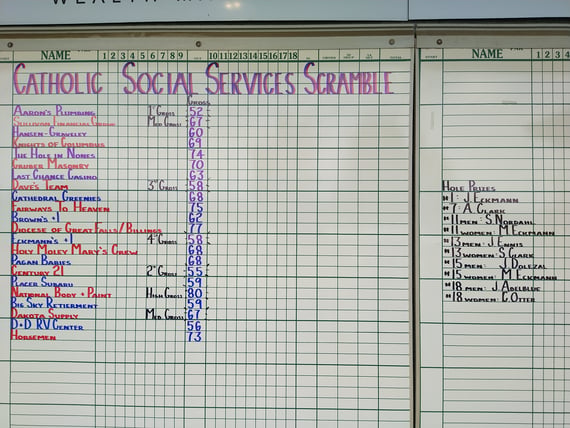 NAME 1 2 3 4 5 6 7 8 9 10 11 12 13 14 15 16 17 18
CATHOLIC SOCIAL SERVICES SCRAMBLE
GROSS
AARON'S PLUMBING 1st GROSS 52
SULLIVAN FINANCIAL GROUP MED GROSS 67
HANSEN-GRAVELEY 60
KNIGHTS OF COLUMBUS 69
THE HOLE IN NONES 74
GRUBER MASONRY 70
LAST CHANCE CASINO 63
DAVE'S TEAM 3rd GROSS 58
CATHEDRAL GREENIES 68
FAIRWAYS TO HEAVEN 75
BROWN'S +1 62
DIOCESE OF GREAT FALLS/BILLINGS 77
ECKMANN'S +1 4th GROSS 58
HOLY MOLEY MARY'S CREW 68
PAGAN BABIES 68
CENTURY 21 2nd GROSS 55
PLACER SUBARU 59
NATIONAL BODY + PAINT HIGH GROSS 80
BIG SKY RETIERMENT 59
DAKOTA SUPPLY MED GROSS 67
D+D RV CENTER 56
HORSEMEN 73
NAME 1 2 3 4
HOLE PRIZES
#1: J. ECKMANN
#7: A. CLARK
#11 MEN: S. NORDAHL
#11 WOMEN: M. ECKMANN
#13 MEN: J. ENNIS
#13 WOMEN: S. CLARK
#15 MEN: J. DOLEZAL
#15 WOMEN: M. ECKMANN
#18 MEN: J. ADELBLUE
#18 WOMEN: C. OTTER